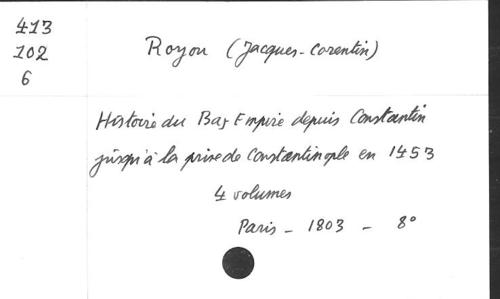 413
102
6
Royou (Jacques-Corentin)
Histoire du Bas Empire depuis Constantin
jusqu'à la prise de Constantinople en 1453
4 volumes
Paris - 1803 - 8°